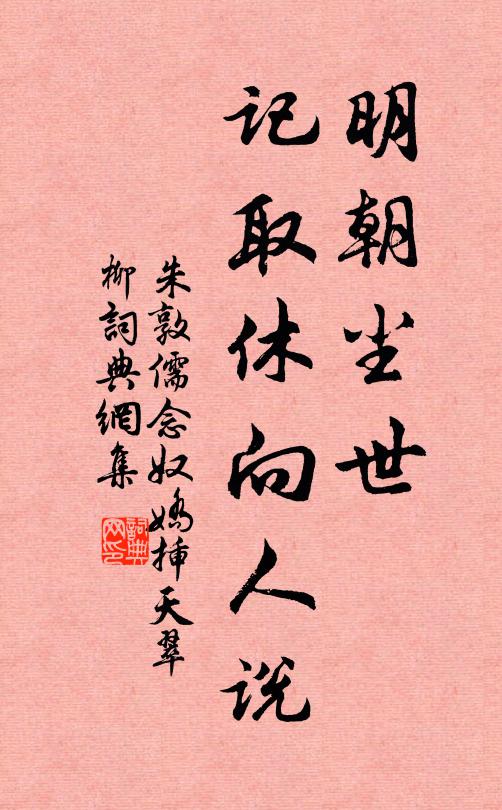 明朝尘世
记取休向人说
朱敦儒念奴娇插天翠
柳詞典網集
詞典
网印